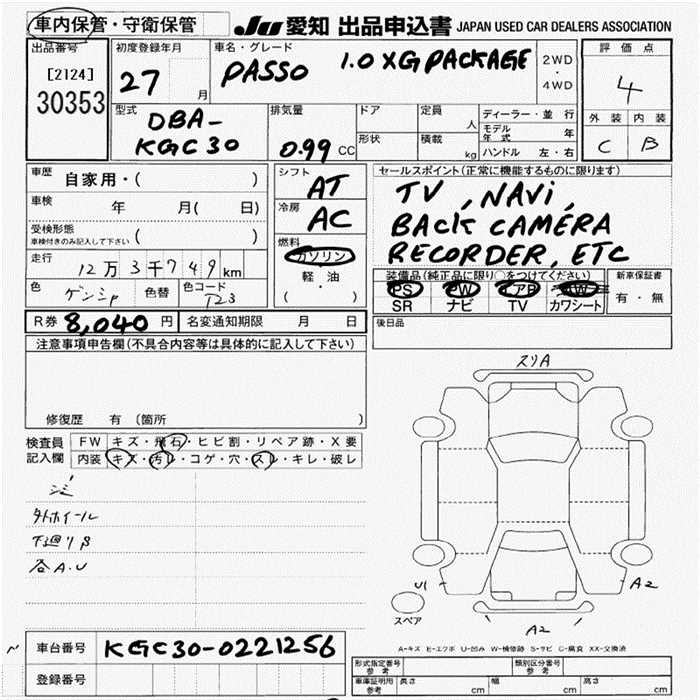 車内保管・守衛保管 JU 愛知 出品申込書 JAPAN USED CAR DEALERS ASSOCIATION
出品番号 初度登録年月 車名・グレード 評価点
[2124] 27 月 PASSO 1.0 XG PACKAGE 2WD・4WD 4
30353
型式 排気量 ドア 定員 人 ディーラー・並行 外装 内装
DBA-
KGC30 0.99 CC 形状 積載 kg モデル年式 年 C B
ハンドル 左・右
車歴 自家用・( ) シフト AT セールスポイント(正常に機能するものに限ります)
車検 年 月( 日) 冷房 AC TV, NAVi,
受検形態 ( ) BACK CAMÉRA
車検付きのみ記入して下さい
燃料 ガソリン RECORDER, ETC
走行 12万3千749km 軽・油 装備品(純正品に限り○をつけてください) 新車保証書
PS PW エアB AW
色 色替 色コード T23 ( ) SR ナビ TV カワシート 有・無
R券 8,040円 名変通知期限 月 日 後日品
注意事項申告欄(不具合内容等は具体的に記入して下さい)
修復歴 有 (箇所 )
スリA
検査員 FW キズ・飛石・ヒビ割・リペア跡・X要
記入欄 内装 キズ・汚レ・コゲ・穴・スレ・キレ・破レ
外ホイール
各A.U
U1 A2
スペア
A2
車台番号 KGC30-0221256
A-キズ E-エクボ U-凹み W-補修跡 S-サビ C-腐食 XX-交換済
登録番号
形式指定番号 参考 類別区分番号 参考
車庫証明用 参考 長さ cm 幅 cm 高さ cm